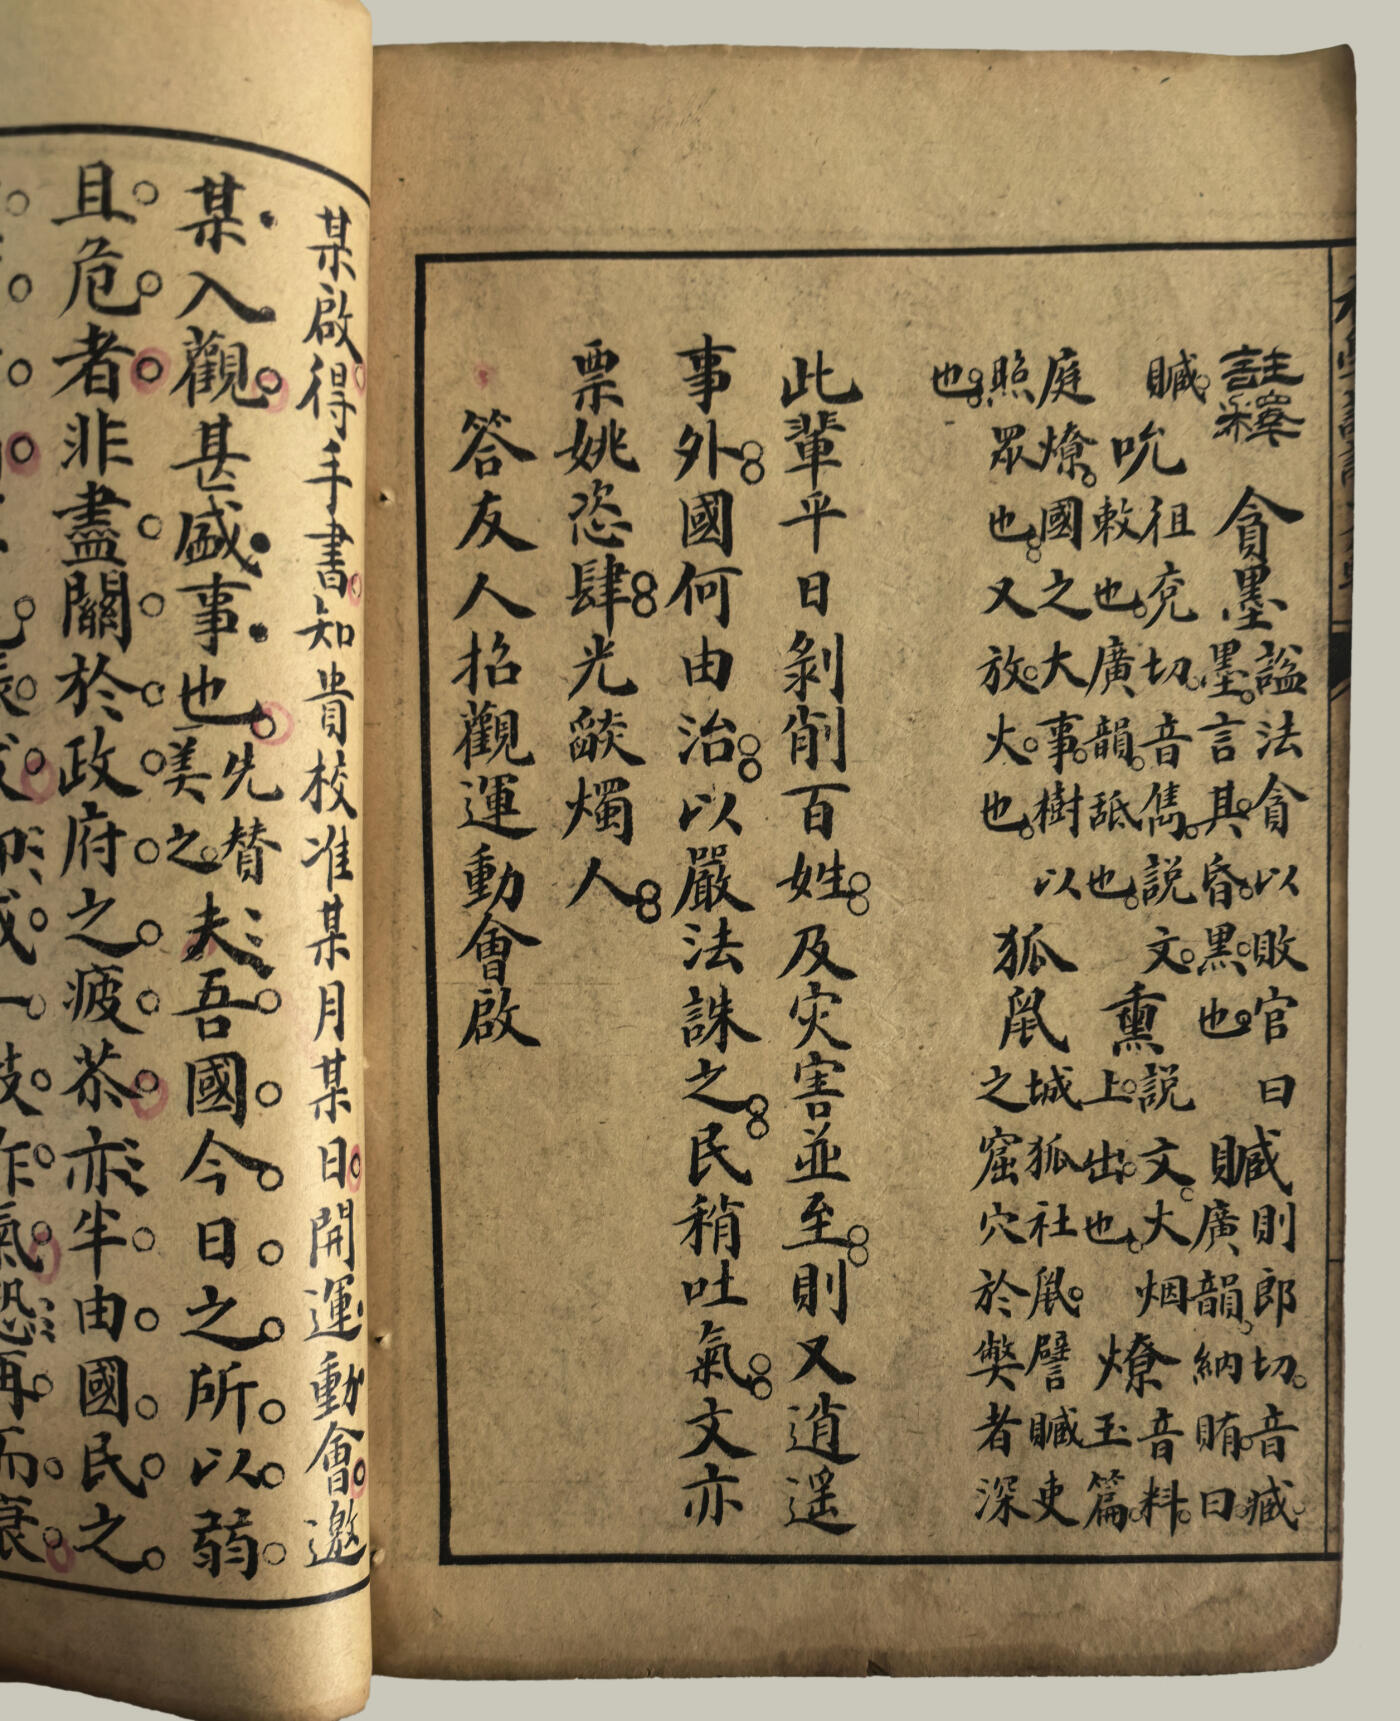 註釋 貪墨 謚法貪以敗官曰墨言其昏黑也 贓 則郎切音臧廣韻納賄曰
贓 吮 徂兗切音雋說文敕也廣韻舐也 熏 說文大烟上出也 燎 音料玉篇
庭燎國之大事樹以照眾也又放火也 狐鼠 城狐社鼠譬贓吏之窟穴於獘者深
也
此輩平日剝削百姓及灾害並至則又逍遥
事外國何由治以嚴法誅之民稍吐氣文亦
票姚恣肆光燄燭人
答友人招觀運動會啟
某啟得手書知貴校准某月某日開運動會邀
某入觀甚盛事也先贊美之夫吾國今日之所以弱
且危者非盡關於政府之疲苶亦半由國民之